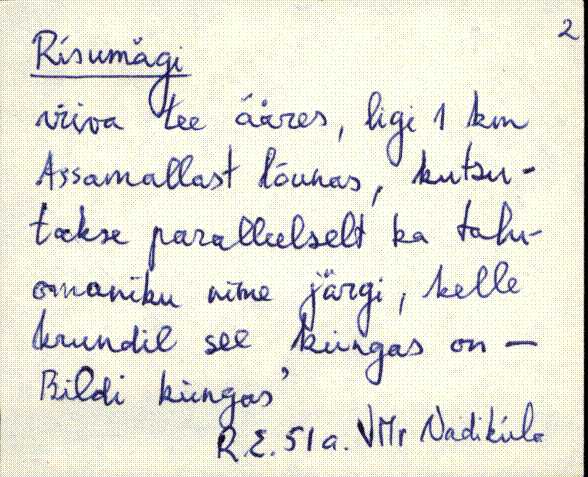 2
Risumägi
väiva tee ääres, ligi 1 km
Assamallast lõunas, kutsu-
takse paralleelselt ka talu-
omaniku nime järgi, kelle
krundil see küngas on —
Bildi küngas'
R.E. 51 a. VMr Nadiküla